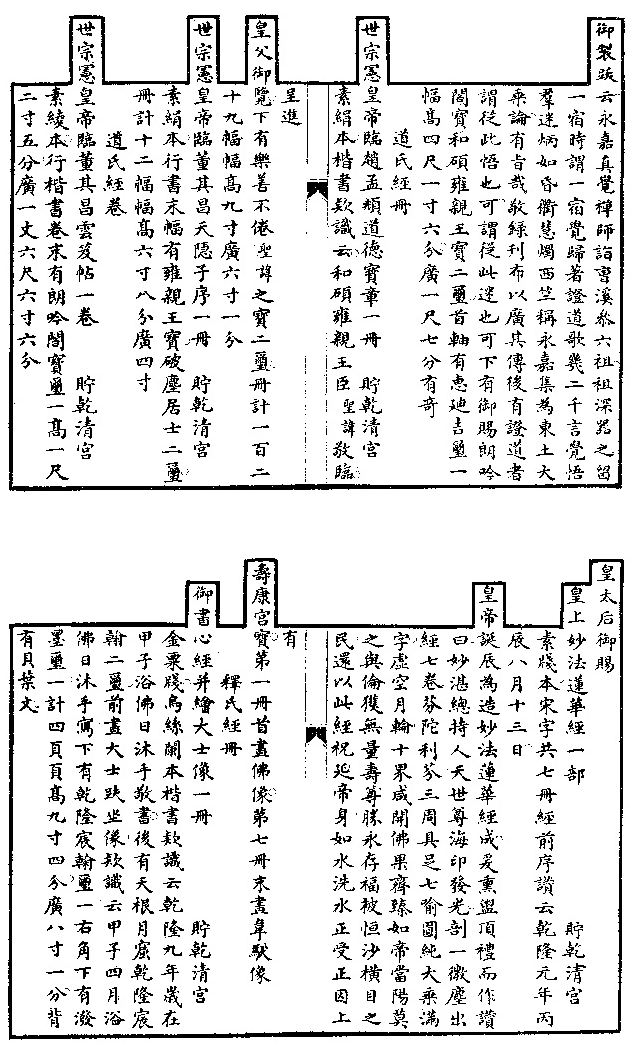 御製跋云永嘉真覺禪師詣曹溪叅六祖祖深器之留
一宿時謂一宿覺歸著證道歌幾二千言覺悟
羣迷炳如昏衢慧燭西竺稱永嘉集為東土大
乘論有旨哉敬録刋布以廣其傳後有證道者
謂從此悟也可謂從此迷也可下有御賜朗吟
閣寶和碩雍親王寶二璽首軸有惠廸吉璽一
幅高四尺一寸六分廣一尺七分有竒
道氏經册
世宗憲皇帝臨趙孟頫道德寶章一册 貯乾清宫
素絹本楷書欵識云和碩雍親王臣 聖諱敬臨
呈進
皇父御覽下有樂善不倦 聖諱之寶二璽册計一百二
十九幅幅高九寸廣六寸一分
世宗憲皇帝臨董其昌天隱子序一册 貯乾清宫
素絹本行書末幅有雍親王寶破塵居士二璽
册計十二幅幅高六寸八分廣四寸
道氏經卷
世宗憲皇帝臨董其昌雲笈帖一卷 貯乾清宫
素綾本行楷書卷末有朗吟閣寶璽一高一尺
二寸五分廣一丈六尺六寸六分
皇太后御賜
皇上妙法蓮華經一部 貯乾清宫
素牋本宋字共七册經前序讚云乾隆元年丙
辰八月十三日
皇帝誕辰為造妙法蓮華經成爰熏盥頂禮而作讚
曰妙湛總持人天世尊海印發光剖一微塵出
經七卷芬陀利芬三周具足七喻圓純大乘滿
字虚空月輪十界咸開佛果齊臻如帝當陽莫
之與倫獲無量壽尊勝永存福被恒沙横目之
民還以此經祝延帝身如水洗水正受正因上
有
壽康宫寶第一册首畫佛像第七册末畫韋馱像
釋氏經册
御書心經并繪大士像一册 貯乾清宫
金粟牋烏絲闌本楷書欵識云乾隆九年歲在
甲子浴佛日沐手敬書後有天根月窟乾隆宸
翰二璽前畫大士趺坐像欵識云甲子四月浴
佛日沐手寫下有乾隆宸翰璽一右角下有潑
墨璽一計四頁頁高九寸四分廣八寸一分背
有貝葉文